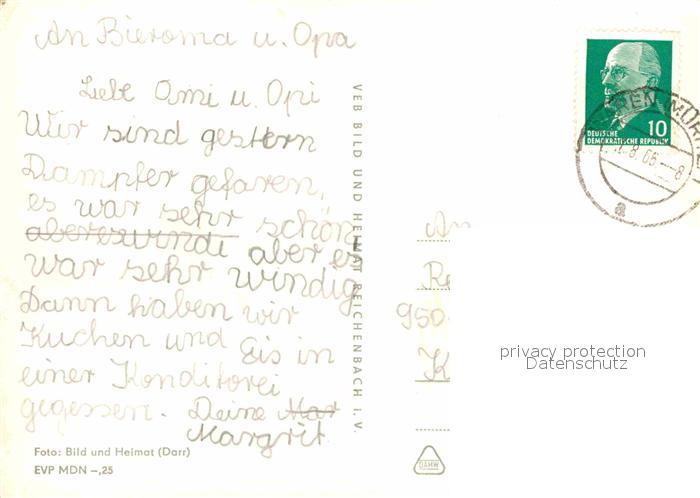 An Bieroma u. Opa
Liebe Omi u. Opi
Wir sind gestern
Dampfer gefaren,
es war sehr schön
abereswindi aber es
war sehr windig
Dann haben wir
Kuchen und Eis in
einer Konditorei
gegessen. Deine Mar
Margrit
Foto: Bild und Heimat (Darr)
EVP MDN –,25
VEB BILD UND HEIMAT REICHENBACH I. V.
DEUTSCHE
DEMOKRATISCHE REPUBLIK
10
8.65.–8
a
An
Re
950
K
privacy protection
Datenschutz
DAMW